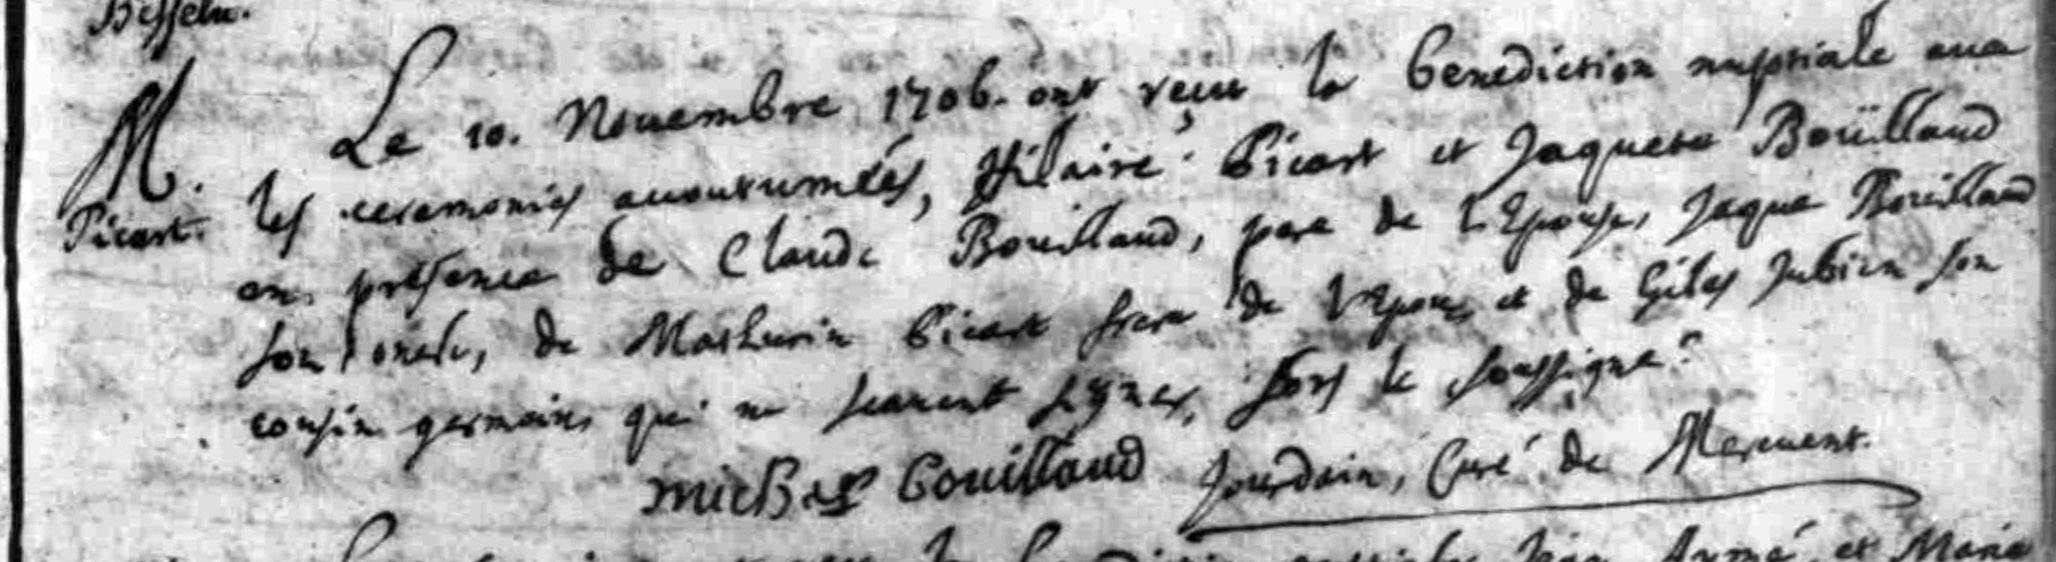 Besseau.
M. Le 10. Nouembre 1706. ont reçeu la benediction nuptiale auec
Picart. les ceremonies accoutumées, Hilaire Picart et Jaquete Boüilland
en presence de Claude Bouilland, pere de l'Epouse, Jaque Bouilland
son oncle, de Mathurin Picart frere de l'Epoux et de Giles Jubien son
cousin germain, qui ne scauent signer, fors le soussigné.
michel bouilland Jourdain, Curé de Meruent.
la benediction nuptiale Jean et Marie